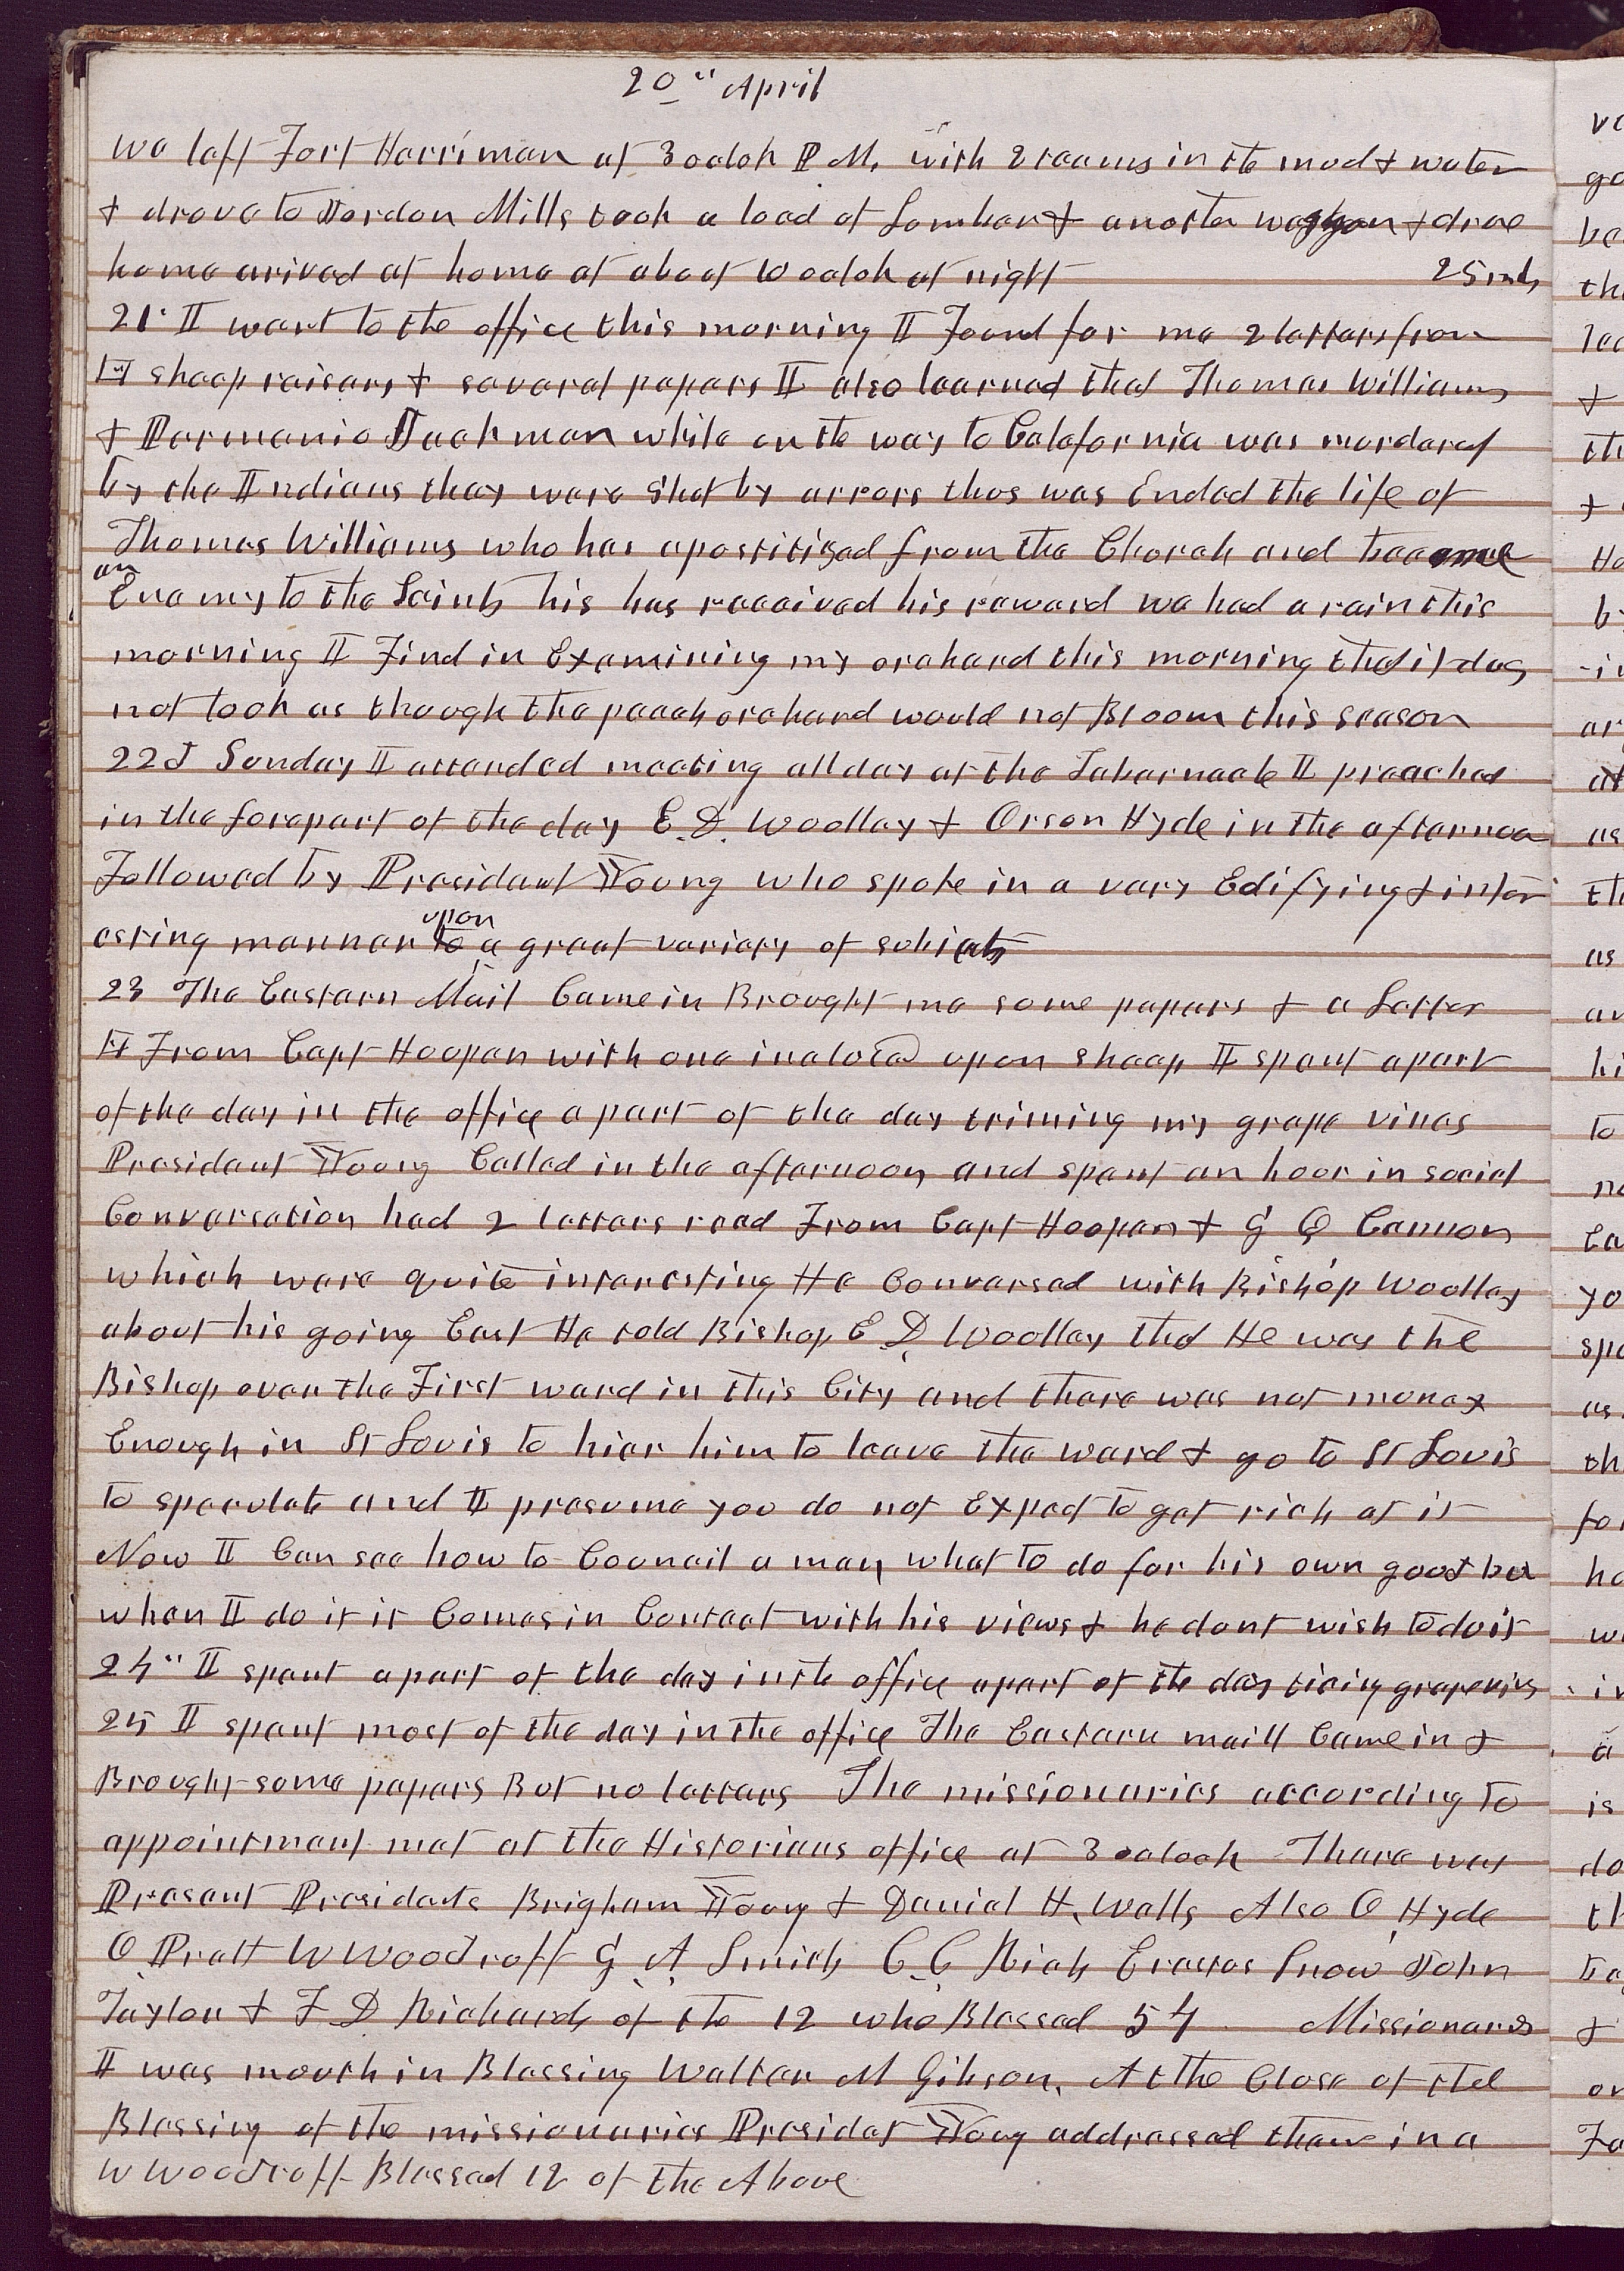 20th April
we left Fort Harriman at 3 oclok P M. with 2 teams in the mud & water
& drove to Jordon Mills took a load of Lumber & another waggon & drove
home arived at home at about 10 oclok at night 25 mls
21st I went to the office this morning I Found for me 2 letters from
sheep raisers & several papers I also learned that Thomas Williams
& Parmenio Jackman while on the way to Calafornia was murdered
by the Indians they were Shot by arrors thus was Ended the life of
Thomas Williams who has apostitized from the Church and become
an
Enemy to the Saints his has received his reward we had a rain this
morning I Find in Examining my orchard this morning that it does
not look as though the peach orchard would not Bloom this season
22d Sunday I attended meeting all day at the Tabernacle I preached
in the forepart of the day E. D. Woolley & Orson Hyde in the afternoon
Followed by President Young who spoke in a very Edifying & inter
esting manner to upon a great variety of subjects
23 The Eastern Mail Came in Brought me some papers & a Letter
From Capt Hooper with one inclosed upon sheep I spent a part
of the day in the office a part of the day triming my grape vines
President Young Called in the afternoon and spent an hour in social
Conversation had 2 letters read From Capt Hooper & G Q Cannon
which were quite interesting He Conversed with Bishop Woolley
about his going East He told Bishop E D. Woolley that He was the
Bishop over the First ward in this City and there was not money
Enough in St Louis to hier him to leave the ward & go to St Louis
to speculate and I presume you do not Expect to get rich at it
Now I Can see how to Council a man what to do for his own good but
when I do it it Comes in Contact with his views & he dont wish to do it
24" I spent a part of the day in the office a part of the day tieing grapevines
25 I spent most of the day in the office The Eastern maill Came in &
Brought some papers But no letters The missionaries according to
appointment met at the Historians office at 3 oclock There was
Present Presidents Brigham Young & Daniel H. Wells Also O Hyde
O Pratt W Woodruff G. A. Smith C. C. Rich Erastus Snow John
Taylor & F D Richards of the 12 who Blessed 54 Missionares
I was mouth in Blessing Walter M Gibson. At the Close of the
Blessing of the missionaries Presidet Young addressed them in a
W Woodruff Blessed 12 of the Above